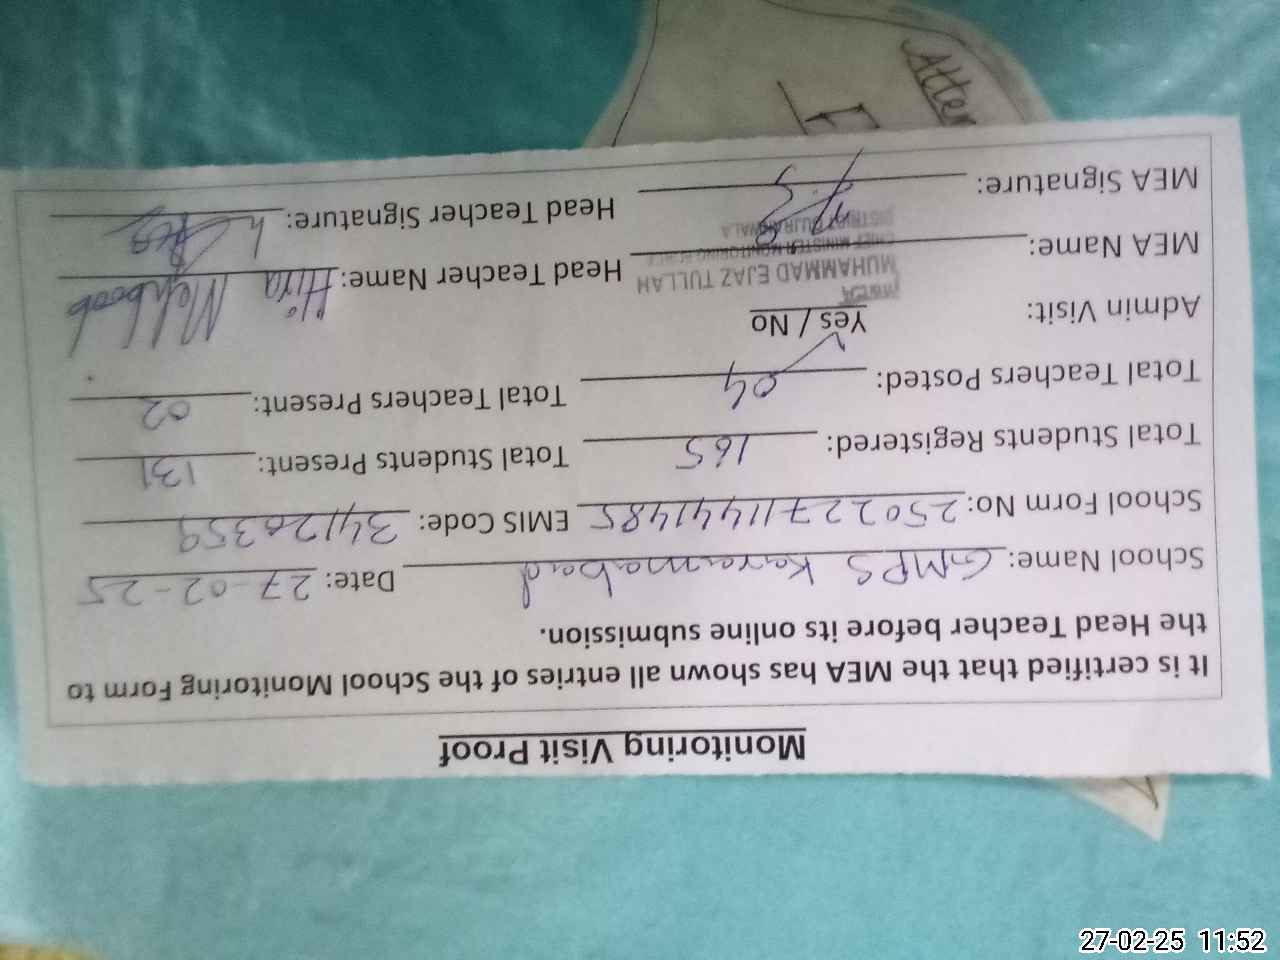 Monitoring Visit Proof
It is certified that the MEA has shown all entries of the School Monitoring Form to
the Head Teacher before its online submission.
School Name: GMPS Karamabad Date: 27-02-25
School Form No: 25022711441485 EMIS Code: 34120359
Total Students Registered: 165 Total Students Present: 131
Total Teachers Posted: 04 Total Teachers Present: 02
Admin Visit: Yes / No
MEA Name: MUHAMMAD EJAZ TULLAH Head Teacher Name: Hira Mehboob
CHIEF MINISTER MONITORING
DISTRICT GUJRANWALA
MEA Signature: Head Teacher Signature:
Atten
27-02-25 11:52